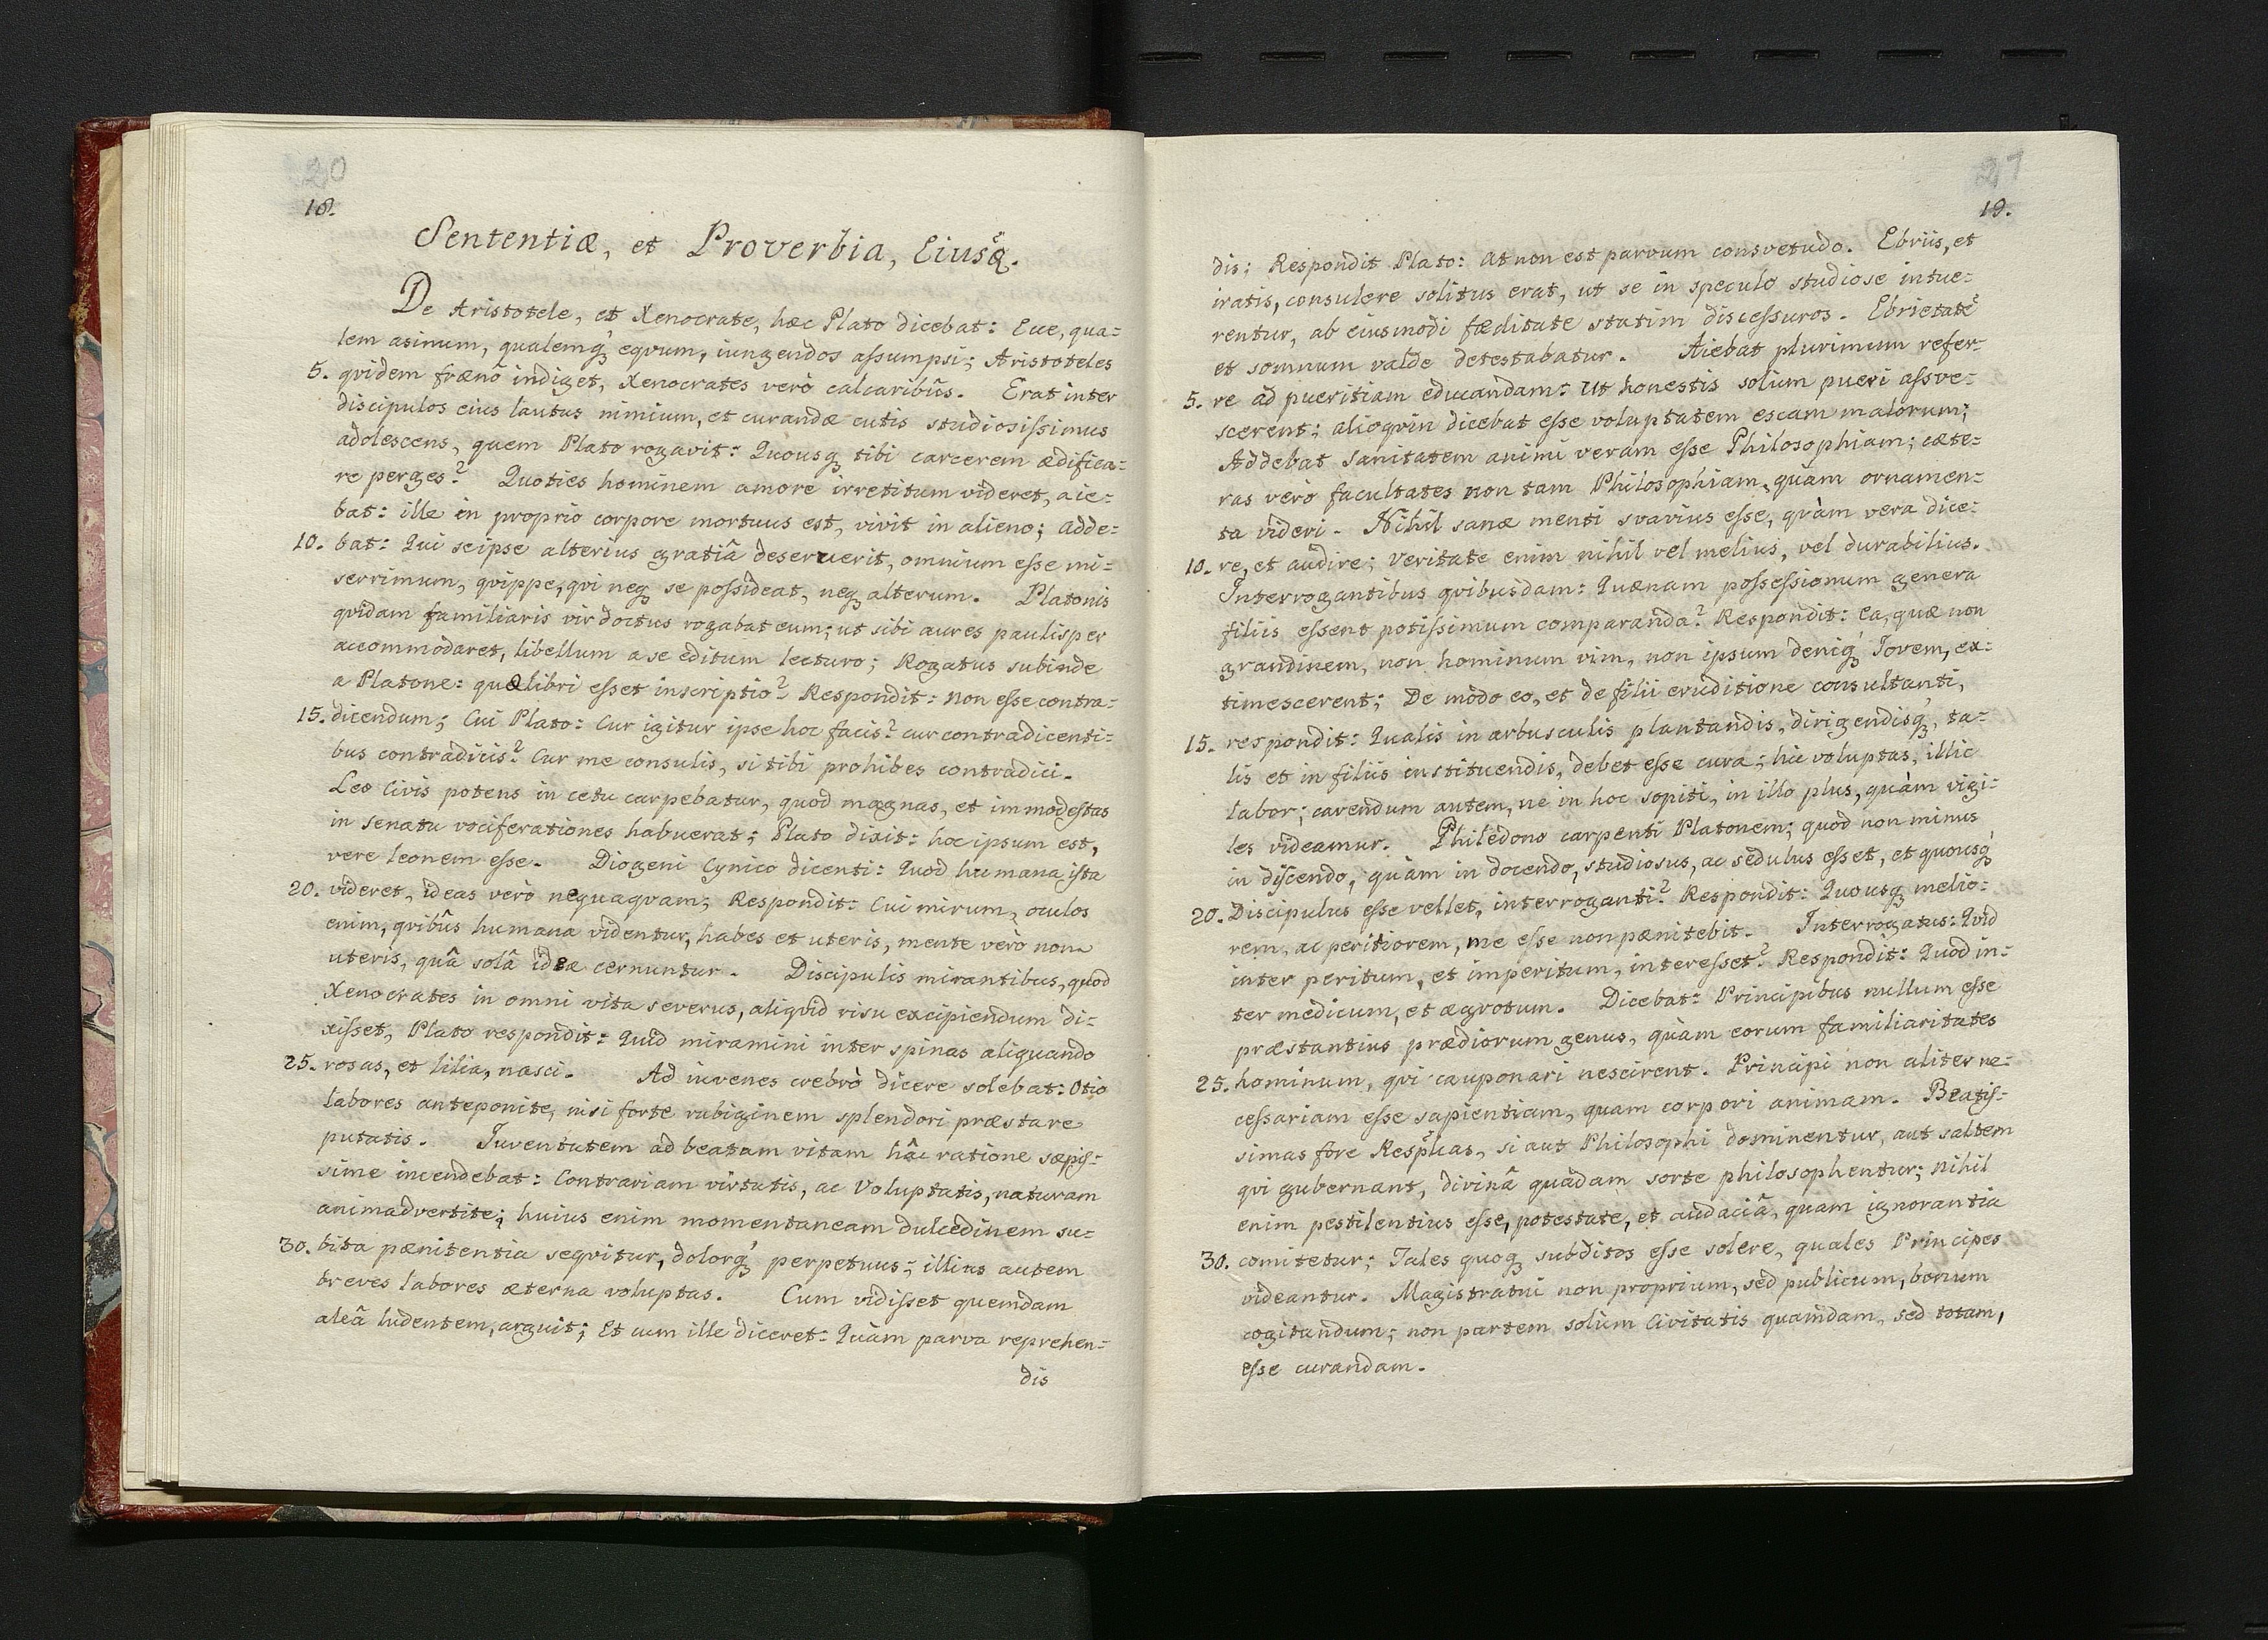 20
18.
Sententiæ, et Proverbia, Eiusq̃.
De Aristotele, et Xenocrate, hæc Plato dicebat: Eue, qua=
lem asinum, qualemq́ eqvum, iungendos aſsumpsi; Aristoteles
5. qvidem frænô indiget, Xenocrates verò calcaribûs. Erat inter
discipulos eius lautus nimium, et curandæ cutis studiosiſsimus
adolescens, quem Plato rogavit: Quousq tibi carcerem ædifica=
re perges? Quoties hominem amore irretitum videret, aie=
bat: ille in proprio corpore mortuus est, vivit in alieno; adde=
10. bat: Qui seipse alterius gratiâ deseruerit, omnium eſse mi=
serrimum, qvippe, qvi neq se poſsideat, neq alterum. Platonis
qvidam familiaris vir doctus rogabat eum; ut sibi aures paulisper
accommodaret, libellum a se editum lecturo; Rogatus subinde
a Platone: quæ libri eſset inscriptio? Respondit: non eſse contra=
15. dicendum; Cui Plato: Cur igitur ipse hoc facis? cur contradicenti=
bus contradicis? Cur me consulis, si tibi prohibes contradici.
Leo Civis potens in cetu carpebatur, quod magnas, et immodestas
in senatu vociferationes habuerat; Plato dixit: hoc ipsum est,
vere leonem eſse. Diogeni Cynico dicenti: Quod humana ista
20. videret, ideas verò nequaqvam; Respondit: Cui mirum, oculos
enim, qvibûs humana videntur, habes et uteris, mente verò non
uteris, quâ solâ ideæ cernuntur. Discipulis mirantibus, quod
Xenocrates in omni vita severus, aliqvid risu excipiendum di=
xiſset, Plato respondit: Quid miramini inter spinas aliquando
25. rosas, et lilia, nasci. Ad iuvenes crebrò dicere solebat: Otio
labores anteponite, nisi forte rubiginem splendori præstare
putatis. Iuventutem ad beatam vitam hâc ratione sæpiſ=
sime incendebat: Contrariam virtutis, ac Voluptatis, naturam
animadvertite; huius enim momentaneam dulcedinem su=
30. bita pænitentia seqvitur, dolorq́ perpetuus; illius autem
breves labores æterna voluptas. Cum vidiſset quemdam
aleâ ludentem, arguit; Et cum ille diceret: Quàm parva reprehen=
dis
21
19.
dis: Respondit Plato: At non est parvum consvetudo. Ebriis, et
iratis, consulere solitus erat, ut se in speculo studiose intue=
rentur, ab eiusmodi fæditate statim disceſsuros. Ebrietatẽ
et somnum valde detestabatur. Aiebat plurimum refer=
5. re ad pueritiam educandam: Ut honestis solùm pueri aſsve=
scerent; alioqvin dicebat eſse voluptatem escam malorum;
Addebat sanitatem animi veram eſse Philosophiam; cæte=
ras verò facultates non tam Philosophiam, quàm ornamen=
ta videri. Nihil sanæ menti svavius eſse, qvàm vera dice=
10. re, et audire; veritate enim nihil vel melius, vel durabilius.
Interrogantibus qvibusdam: Quænam poſseſsionum genera
filiis eſsent potiſsimum comparanda? Respondit: ea, quæ non
grandinem, non hominum vim, non ipsum deniq́ Iovem, ex=
timescerent; De modo eo, et de filii eruditione consultanti,
15. respondit: Qualis in arbusculis plantandis, dirigendisq́, ta=
lis et in filiis instituendis, debet eſse cura; hic voluptas, illic
labor; cavendum autem, ne in hoc sopiti, in illo plus, quàm vigi=
les videamur. Philedono carpenti Platonem; quod non minus
in discendo, quàm in docendo, studiosus, ac sedulus eſset, et quousq́
20. Discipulus eſse vellet, interroganti? Respondit: Quousq melio=
rem, ac peritiorem, me eſse non pænitebit. Interrogatus: Qvid
inter peritum, et imperitum, intereſset? Respondit: Quod in=
ter medicum, et ægrotum. Dicebat: Principibus nullum eſse
præstantius prædiorum genus, quàm eorum familiaritates
25. hominum, qvi cauponari nescirent. Principi non aliter ne=
ceſsariam eſse sapientiam, quam corpori animam. Beatiſ=
simas fore Respũcas, si aut Philosophi dominentur, aut saltem
qvi gubernant, divinâ quâdam sorte philosophentur; nihil
enim pestilentius eſse, potestate, et audaciâ, quam ignorantia
30. comitetur; Tales quoq subditos eſse solere, quales Principes
videantur. Magistratui non proprium, sed publicum, bonum
cogitandum; non partem solùm Civitatis quamdam, sed totam,
eſse curandam.